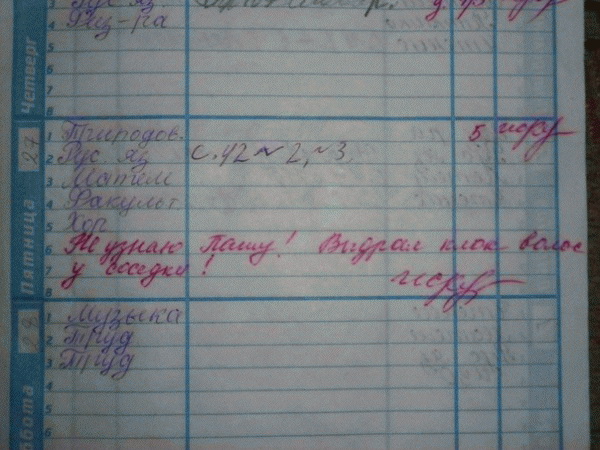 3 Рус яз.
4 Физ-ра
Четверг
1 Природов. 5
27
2 Рус яз с. 42 № 2, № 3.
3 Матем
4 Факульт.
5 Хор
Пятница
6 Не узнаю Пашу! Выдрал клок волос
7 у соседки!
8
1 Музыка
28
2 Труд
3 Труд
4
5
6
ббота